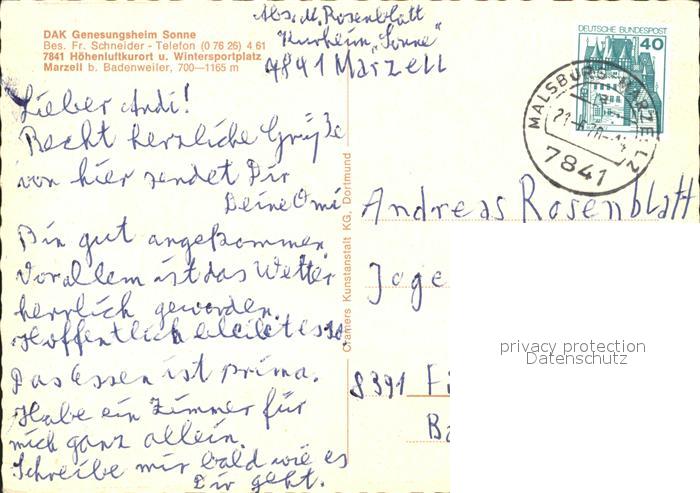 DAK Genesungsheim Sonne
Bes. Fr. Schneider - Telefon (0 76 26) 4 61
7841 Höhenluftkurort u. Wintersportplatz
Marzell b. Badenweiler, 700—1165 m
Abs. M. Rosenblatt
Kurheim „Sonne“
7841 Marzell
DEUTSCHE BUNDESPOST
40
MALSBURG-MARZELL 2
7841
Lieber Andi!
Recht herzliche Grüße
von hier sendet Dir
Deine Omi
Bin gut angekommen
Vor allem ist das Wetter
herrlich geworden.
Hoffentlich bleibt es so
Das Essen ist prima.
Habe ein Zimmer für
mich ganz allein.
Schreibe mir bald wie es
Dir geht.
Cramers Kunstanstalt KG, Dortmund
Andreas Rosenblatt
8391
privacy protection
Datenschutz